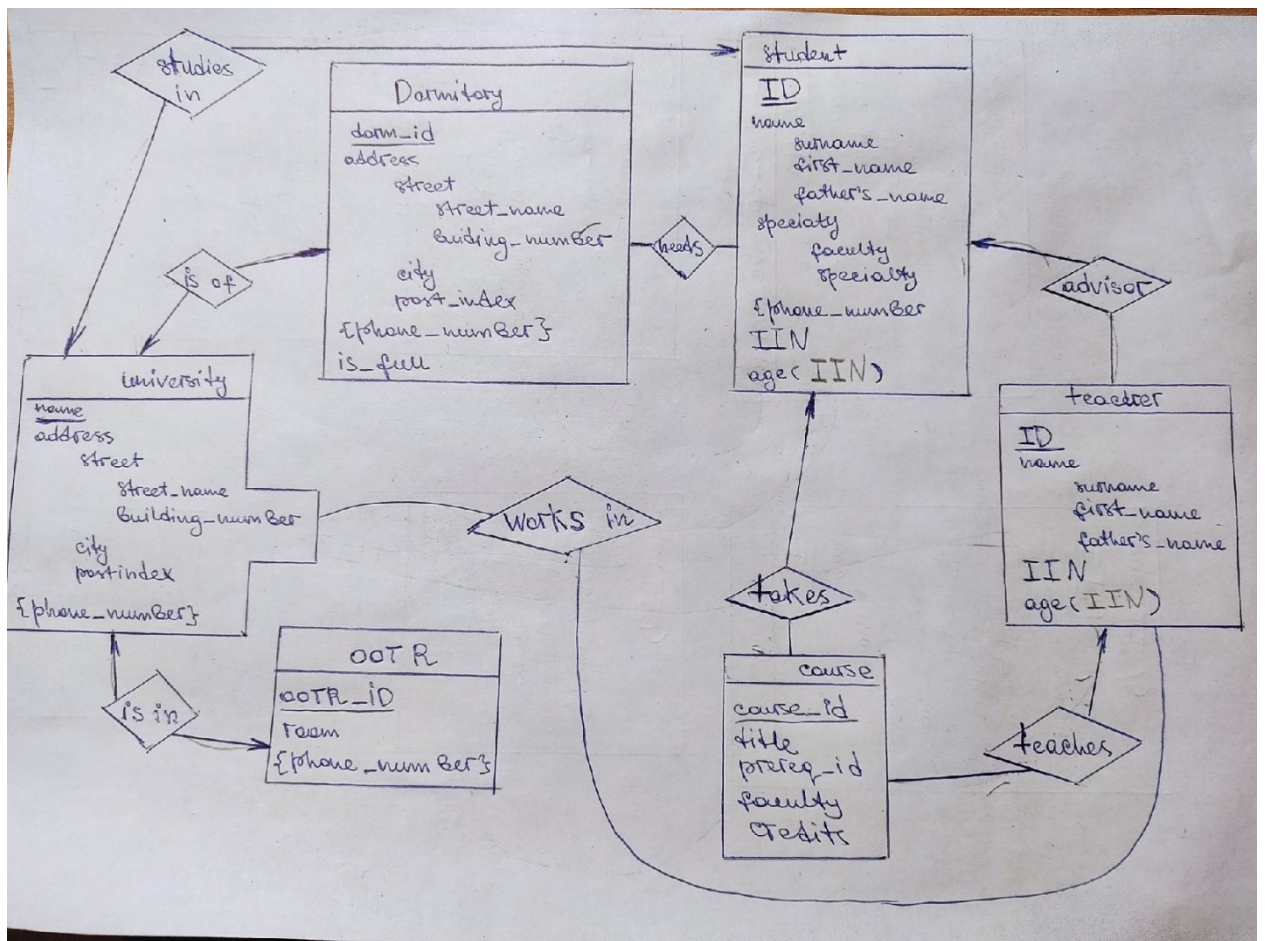 studies
in
Dormitory
dorm_id
address
street
street_name
buiding_number
city
post_index
{phone_number}
is_full
student
ID
name
surname
first_name
father's_name
specialty
faculty
specialty
{phone_number
IIN
age(IIN)
needs
is of
advisor
university
name
address
street
street_name
building_number
city
postindex
{phone_number}
works in
teacher
ID
name
surname
first_name
father's_name
IIN
age(IIN)
takes
is in
OOTR
OOTR_ID
room
{phone_number}
course
course_id
title
prereq_id
faculty
credits
teaches